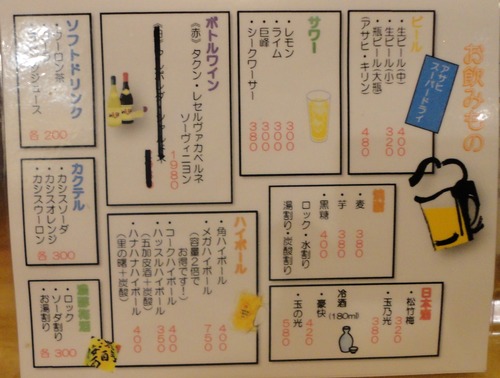 お飲みもの
アサヒ
スーパードライ
ビール
・生ビール(中) 400
・生ビール(小) 320
・瓶ビール(大瓶)
(アサヒ・キリン) 480
サワー
・レモン 300
・ライム 300
・巨峰 300
・シークワーサー 380
ボトルワイン
(赤)タクン・レセルヴァカベルネ
ソーヴィニヨン
1980
ソフトドリンク
・ウーロン茶
各200
焼酎
・麦 380
・芋 380
・黒糖 400
ロック・水割り
湯割り・炭酸割り
ハイボール
・角ハイボール 400
・メガハイボール 750
(容量2倍で
お得です!)
・コークハイボール 400
・ハッスルハイボール 350
(五加皮酒+炭酸)
・ハナハナハイボール 400
(里の曙+炭酸)
カクテル
・カシスソーダ
・カシスオレンジ
・カシスウーロン
各300
・ロック
・ソーダ割り
・お湯割り
各300
日本酒
・松竹梅 320
・玉乃光 380
冷酒
(180ml)
・豪快 420
・玉の光 580